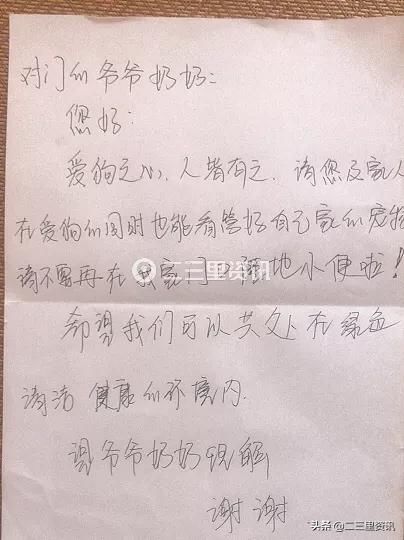 对门的爷爷奶奶:
您好:
爱狗之心、人皆有之.请您及家人
在爱狗的同时也能看管好自己家的宠物
请不要再在我家门口随地小便啦!
希望我们可以共处在绿色
清洁 健康的环境内.
望爷爷奶奶理解
谢谢
二三里资讯
头条 @二三里资讯